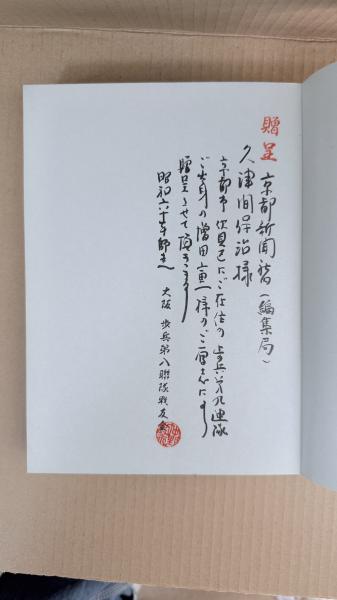 贈呈 京都新聞社(編集局)
久津間保治様
京都市伏見区にご在住の歩兵第九連隊
ご出身の増田寅一様のご厚志により
贈呈させて頂きます
昭和六十年師走
大阪 歩兵第八聯隊戦友会